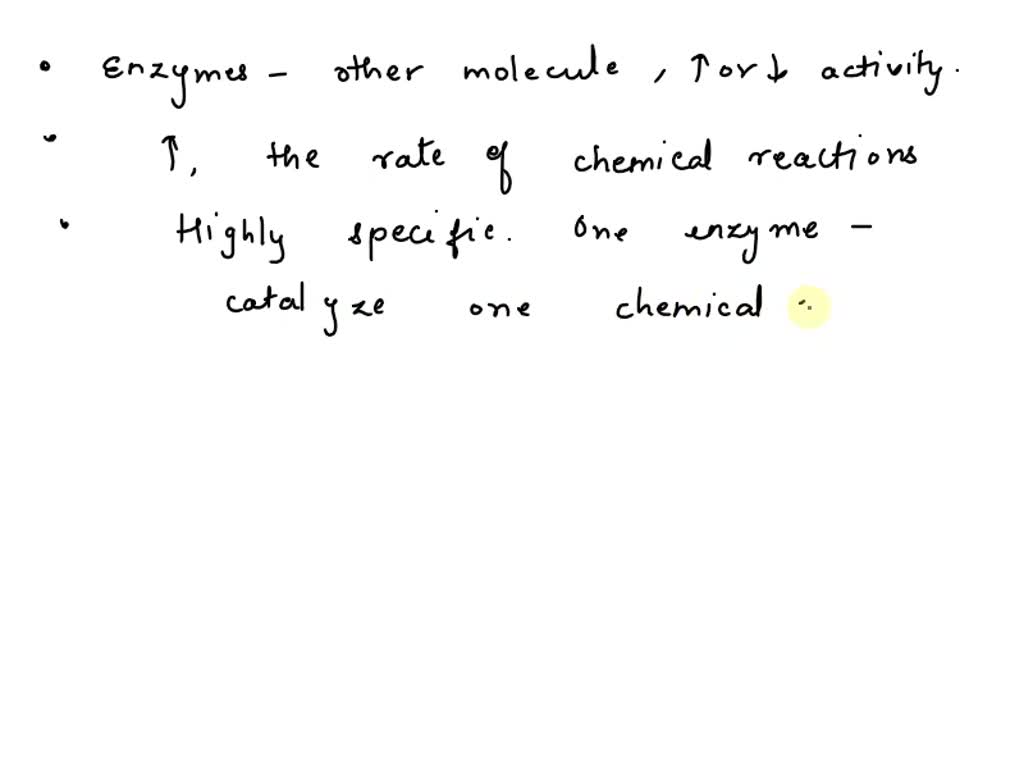 • Enzymes - other molecule, ↑ or ↓ activity.
• ↑, the rate of chemical reactions
• Highly specific. One enzyme -
catalyze one chemical